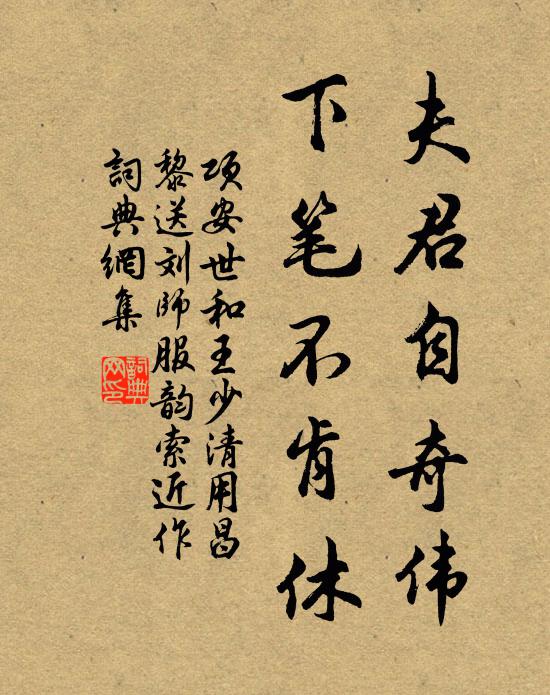 夫君自奇伟
下笔不肯休
项安世和王少清用昌
黎送刘师服韵索近作
詞典網集
詞典
网印